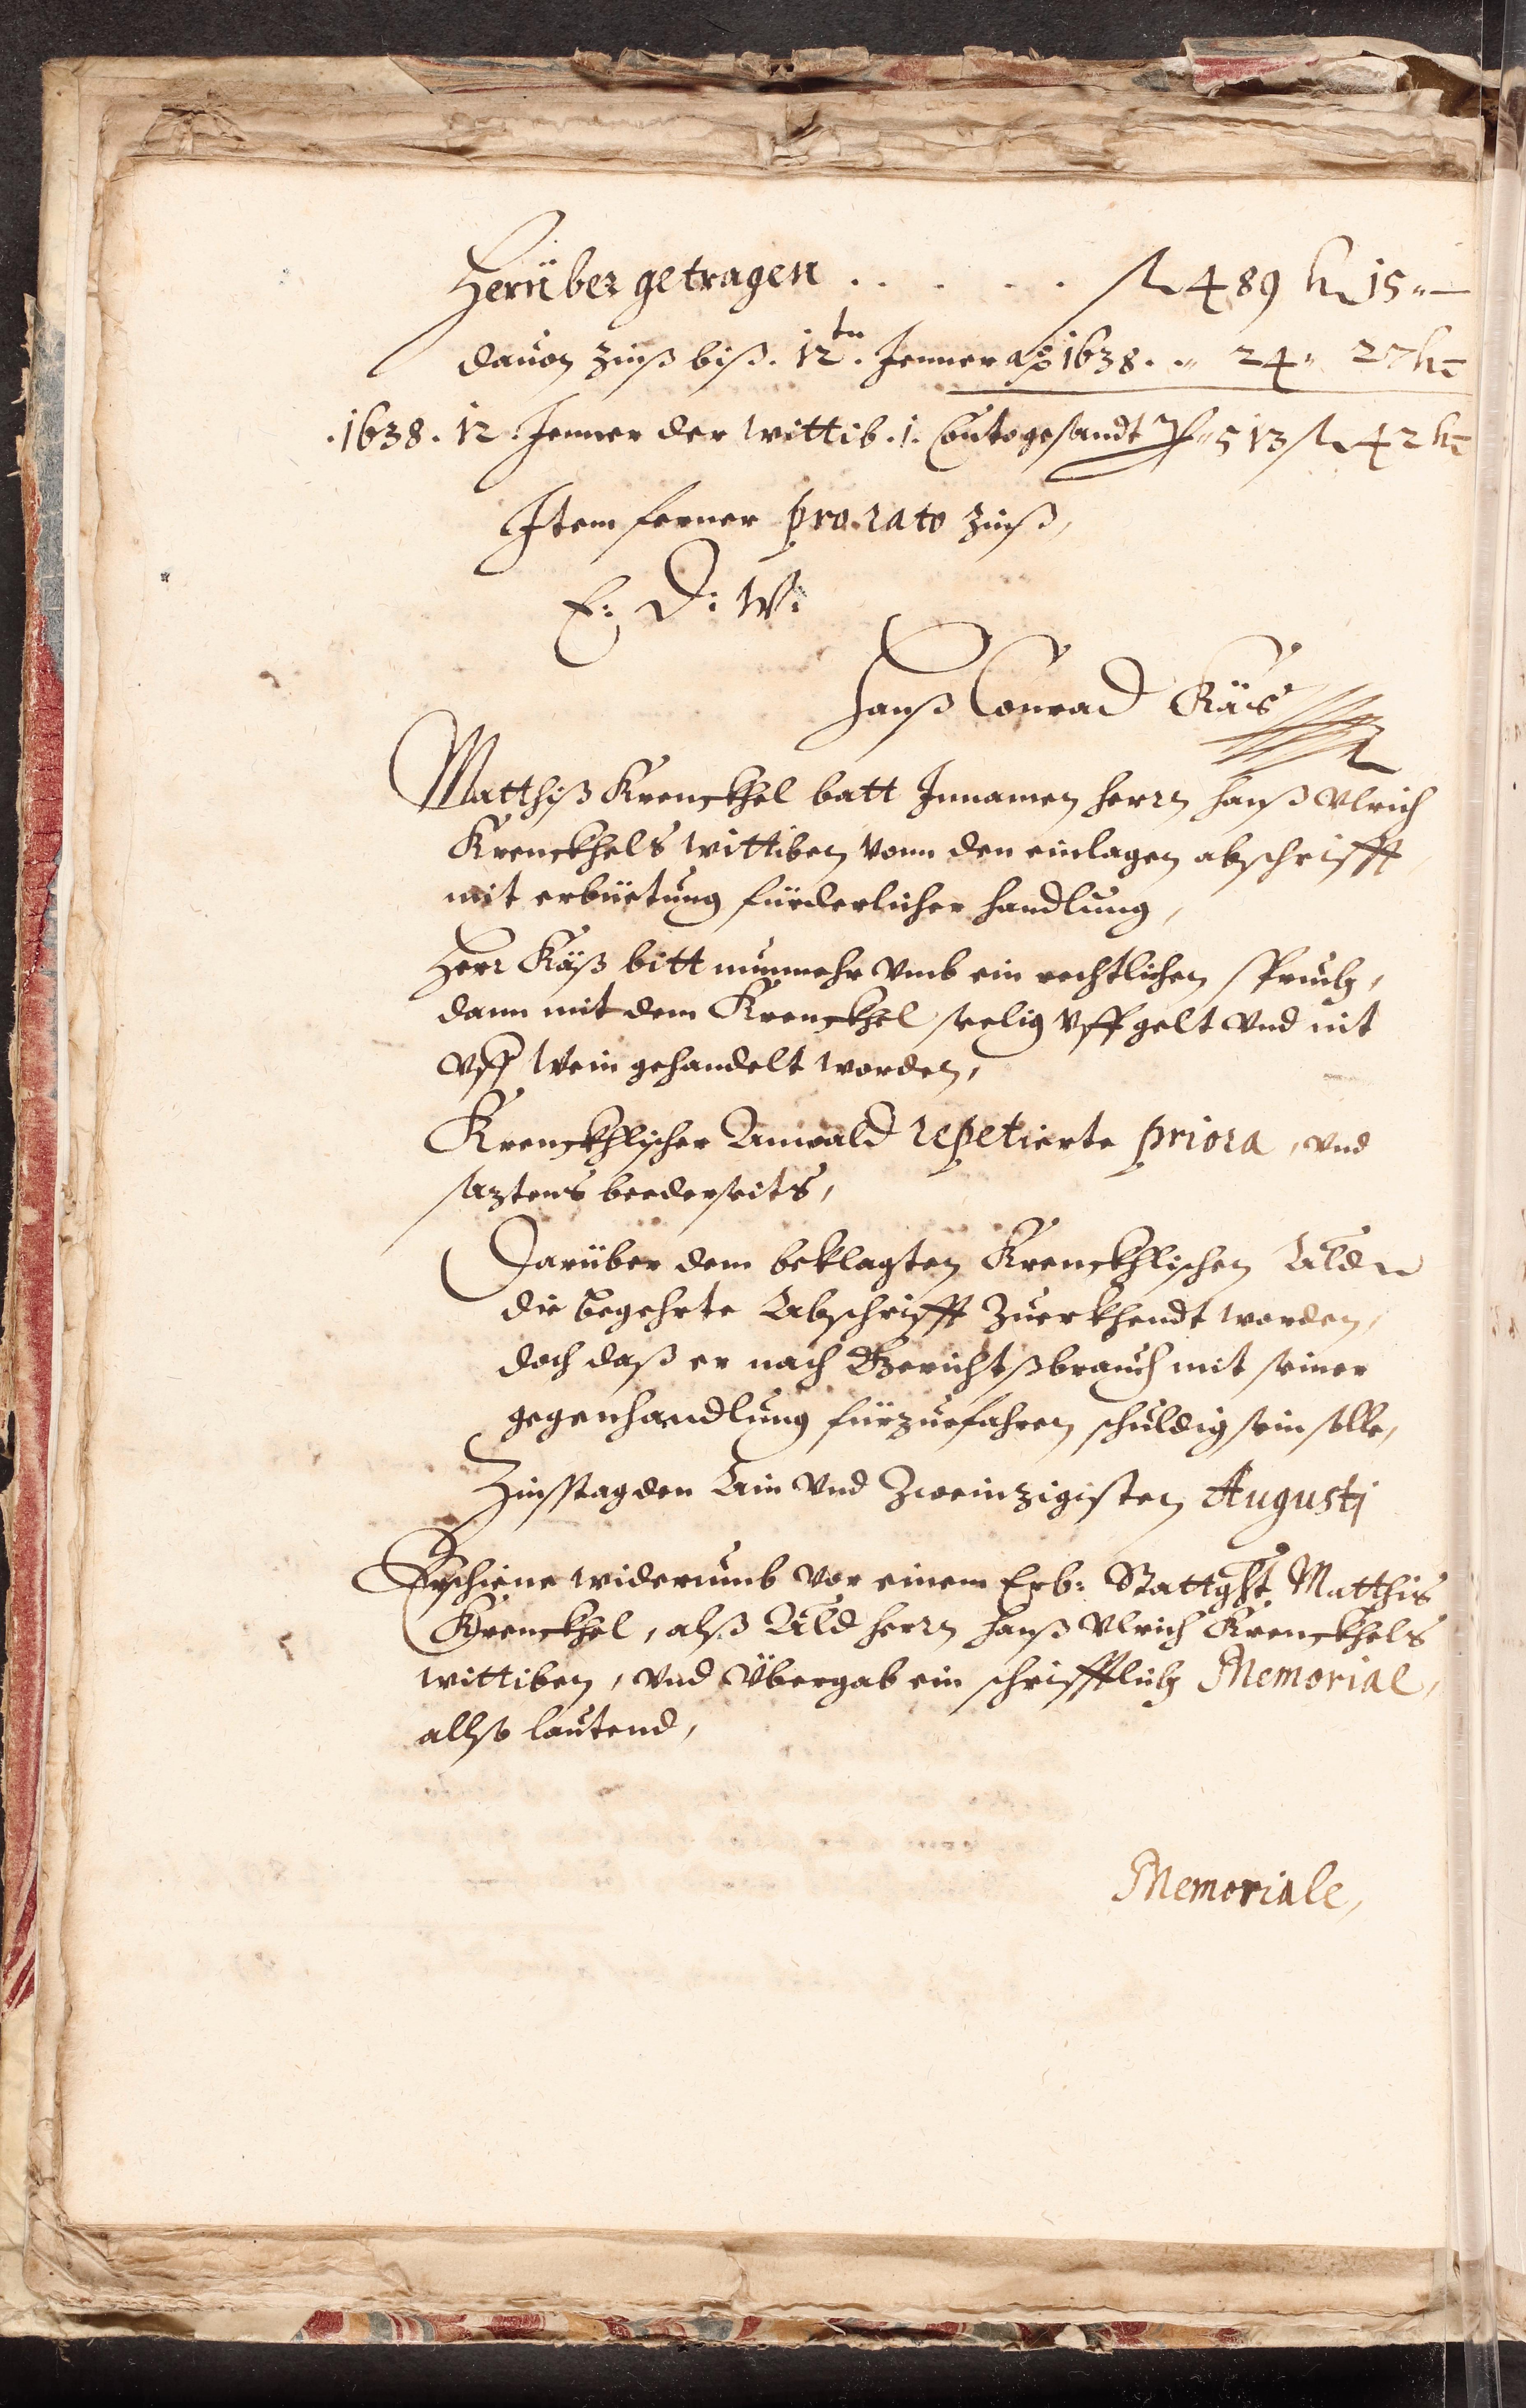 Herüber getragen . . . . . fl 489 kr 15 „ —
dauon Zinß biß. 12ten. Jenner ao 1638. „ 24 „ 27 kr
.1638. 12 Jenner der wittib .1. Conto gesandt „ 513 fl 42 kr
Item ferner pro rato Zinß,
E: D: W:
Hanß Conrad Käß
Matthiß Krenckhel batt Innamen herrn Hanß Vlrich
Krenckhels wittiben vonn den einlagen abschrifft
mit erbüetung fürderlicher handlung,
Herr Käß bitt nunmehr vmb ein rechtlichen spruch,
dann mit dem Krenckhel seelig vff gelt vnd nit
vff Wein gehandelt worden,
Krenckhlischer Anwald repetierte priora, vnd
saztens beederseits,
Darüber dem beklagten Krenckhlischen Awld
die begehrte Abschrifft Zuerkhendt worden,
doch daß er nach Gerichtßbrauch mit seiner
gegenhandlung fürzuefahren schuldig sein solle,
Zinsstag den Ain vnd Zweinzigisten Augusti
Erschine widerumb vor einem Erb: Stattght Matthis
Krenckhel, alß Awld herrn Hanß Vlrich Krenckhels
wittiben, vnd Übergab ein schrifftlich Memorial,
allso lautend,
Memoriale,